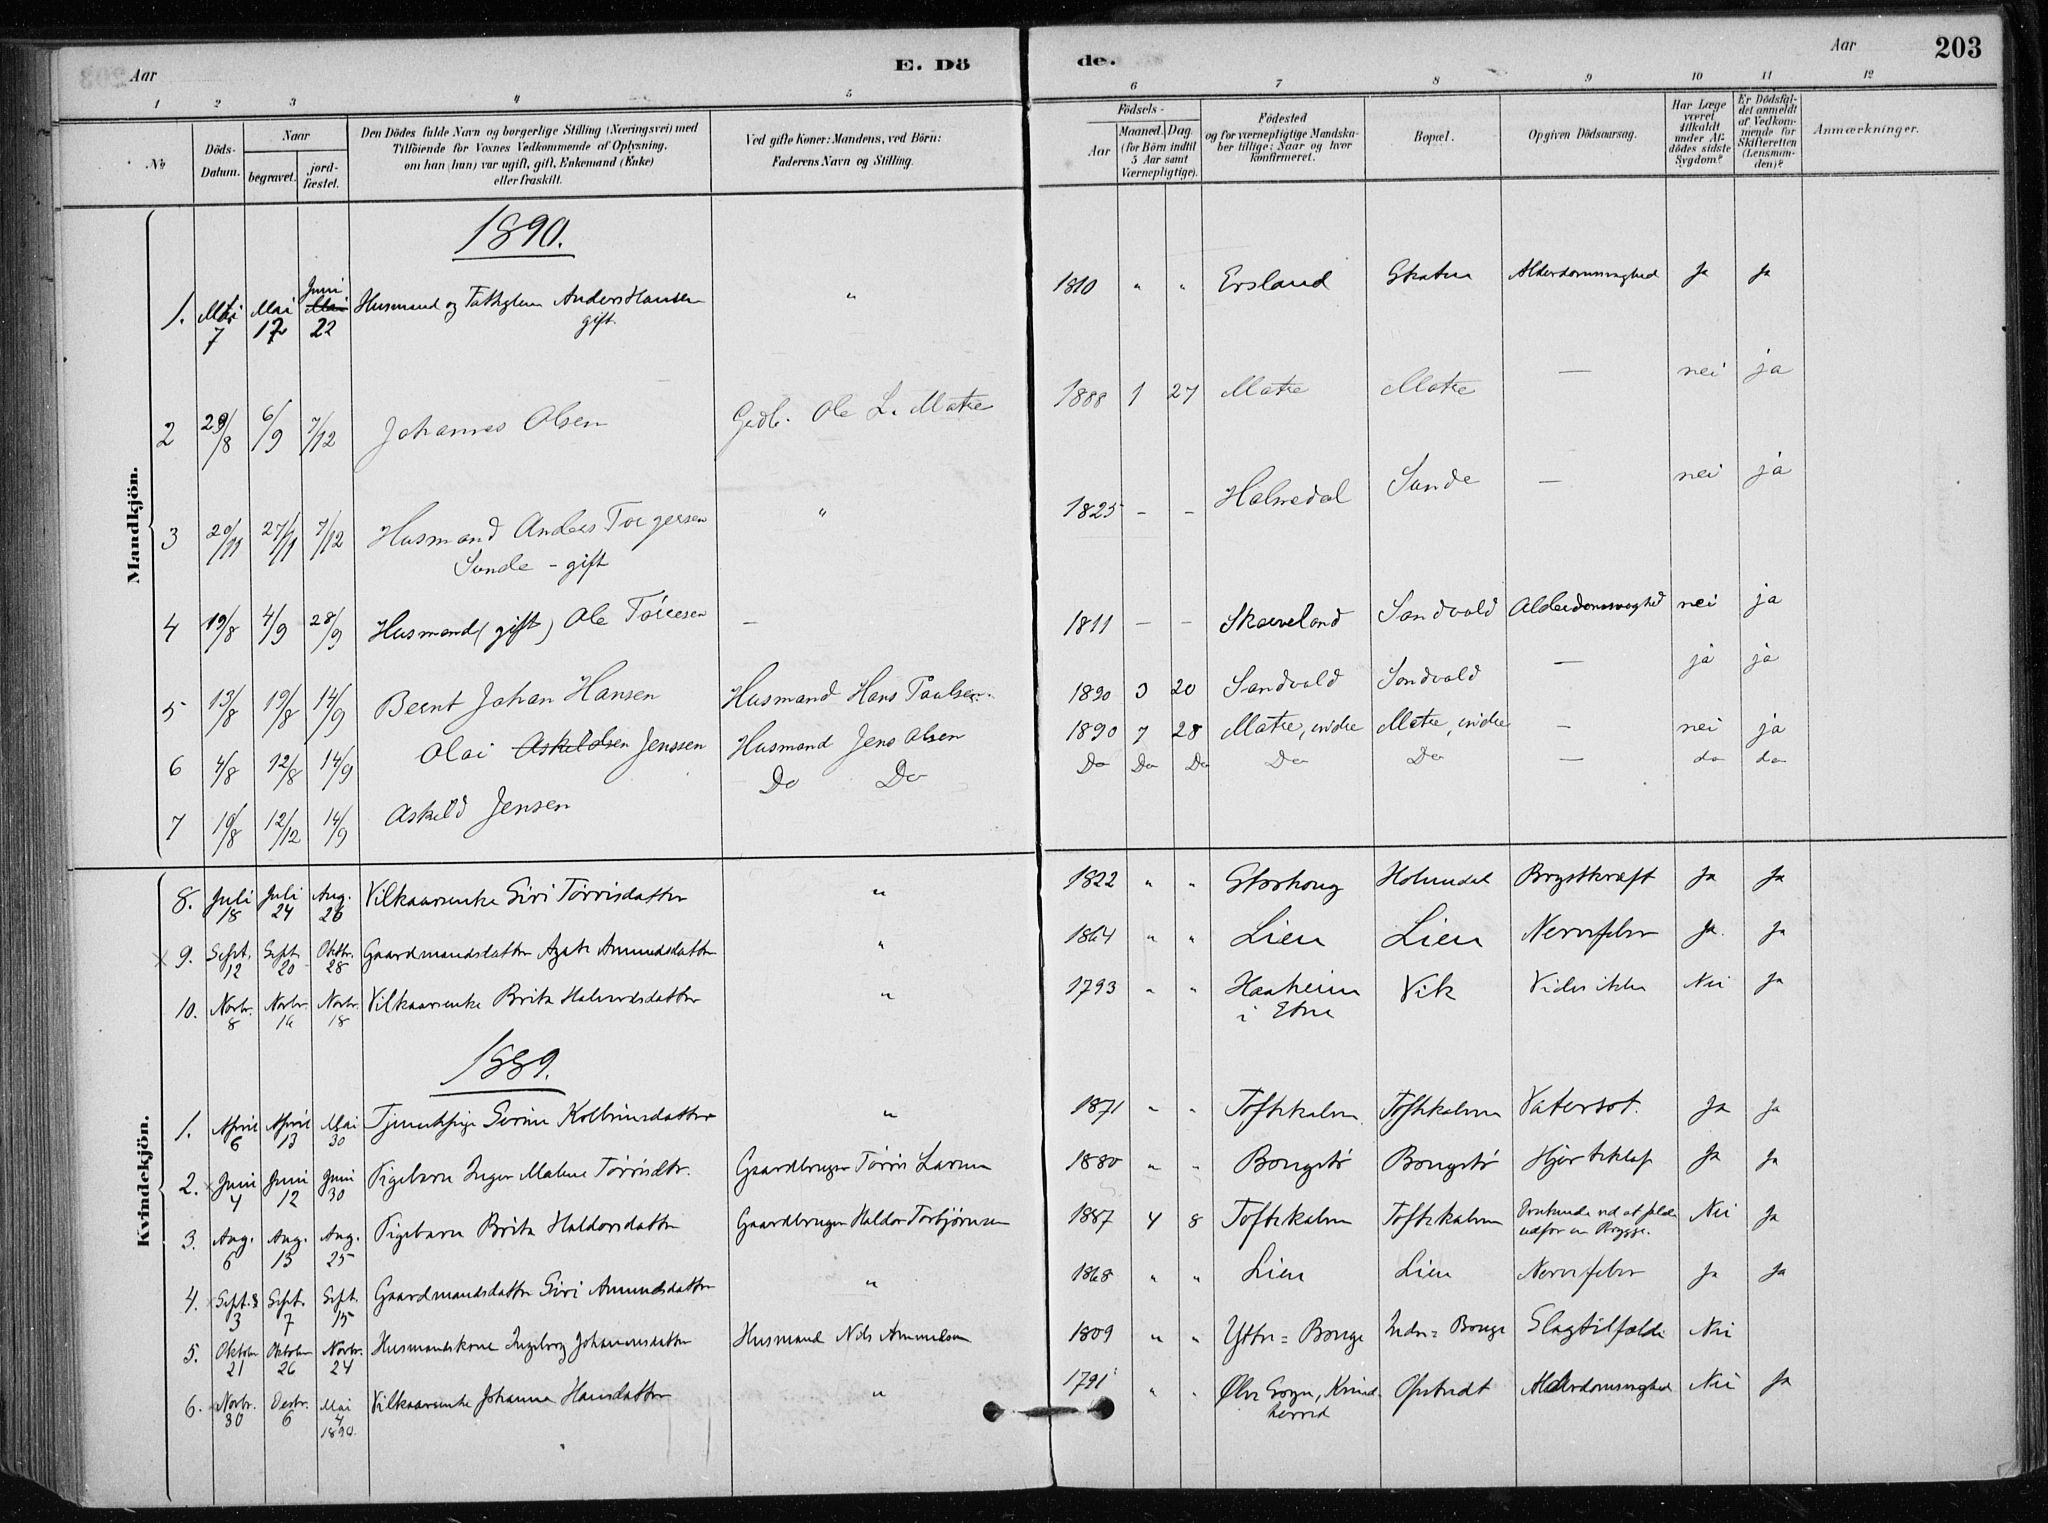 Aar
E. Dö
de.
Aar
203
1 2 3 4 5 6 7 8 9 10 11 12
No
Döds-
Datum.
Naar
begravet.
jord-
fæstet.
Den Dödes fulde Navn og borgerlige Stilling (Næringsvei) med
Tilföiende for Voxnes Vedkommende af Oplysning,
om han (hun) var ugift, gift, Enkemand (Enke)
eller fraskilt.
Ved gifte Koner: Mandens, ved Börn:
Faderens Navn og Stilling.
Födsels-
Aar
Maaned. Dag.
(for Börn indtil
5 Aar samt
Værnepligtige).
Födested
og for værnepligtige Mandska-
ber tillige: Naar og hvor
konfirmeret.
Bopæl.
Opgiven Dödsaarsag.
Har Læge
været
tilkaldt
under Af-
dödes sidste
Sygdom?
Er Dödsfal-
det anmeldt
af Vedkom-
mende for
Skifteretten
(Lensman-
den)?
Anmærkninger.
Mandkjön.
1890.
1. Mai 7 Mai 12 Mai Juni 22 Husmand og Fattiglem Anders Hansen gift " 1810 " " Ersland Skaten Alderdomssvaghed Ja Ja
2 29/8 6/9 7/12 Johannes Olsen Grdb. Ole L. Matre 1888 1 27 Matre Matre — nei ja
3 20/11 27/11 7/12 Husmand Anders Torgersen Sunde - gift " 1825 - - Halsnedal Sunde — nei ja
4 19/8 4/9 28/9 Husmand (gift) Ole Tørresen - 1811 - - Skaaveland Sandvold Alderdomssvaghed nei ja
5 13/8 19/8 14/9 Beent Johan Hansen Husmand Hans Paulsen 1890 3 20 Sandvold Sandvold — ja ja
6 4/8 12/8 14/9 Olai Askildsen Jenssen Husmand Jens Olsen 1890 7 28 Matre, indre Matre, indre — nei ja
7 19/8 12/12 14/9 Askild Jensen Do Do Do Do Do Do Do — do do
Kvindekjön.
8. Juli 18 Juli 24 Aug. 26 Vilkaarsenke Siri Tørrisdatter " 1822 " " Storhoug Holmedal Brystkræft Ja Ja
9. Sept. 12 Sept. 20 Oktbr. 28 Gaardmandsdatter Agate Amundsdatter " 1864 " " Lien Lien Nervefeber Ja. Ja
10. Novbr. 8 Novbr. 16 Novbr. 18 Vilkaarsenke Brita Halvorsdatter " 1793 " " Haaheim i Etne Vik Vides ikke Nei Ja
1889.
1. April 6 April 13 Mai 30 Tjenestepige Serine Kolbeinsdatter " 1871 " " Toftekalven Toftekalven Vatersot. Ja Ja
2. Juni 4 Juni 12 Juni 30 Pigebarn Inger Malene Tørrisdtr. Gaardbruger Tørris Larsen 1880 " " Bongstø Bongstø Hjerteklap Ja Ja
3. Aug. 6 Aug. 13 Aug. 25 Pigebarn Brita Haldorsdatter Gaardbruger Haldor Torbjørnsen 1887 4 8 Toftekalven Toftekalven Druknede ved at falde udfor en Brygge. Nei Ja
4. Sept. 3 Sept. 7 Sept. 15 Gaardmandsdatter Siri Amundsdatter " 1868 " " Lien Lien Nervefeber Ja Ja
5. Oktober 21 Oktober 26 Novbr. 24 Husmandskone Ingeborg Johannesdatter Husmand Nils Ammelsen 1809 " " Yttre=Bouge Indre=Bouge Slagtilfælde Nei
6. Novbr. 30 Decbr. 6 Mai 4 1890 Vilkaarsenke Johanne Hansdatter " 1791 " " Ølve Sogn, Kvindherred Opstvedt Alderdomssvaghed Nei Ja